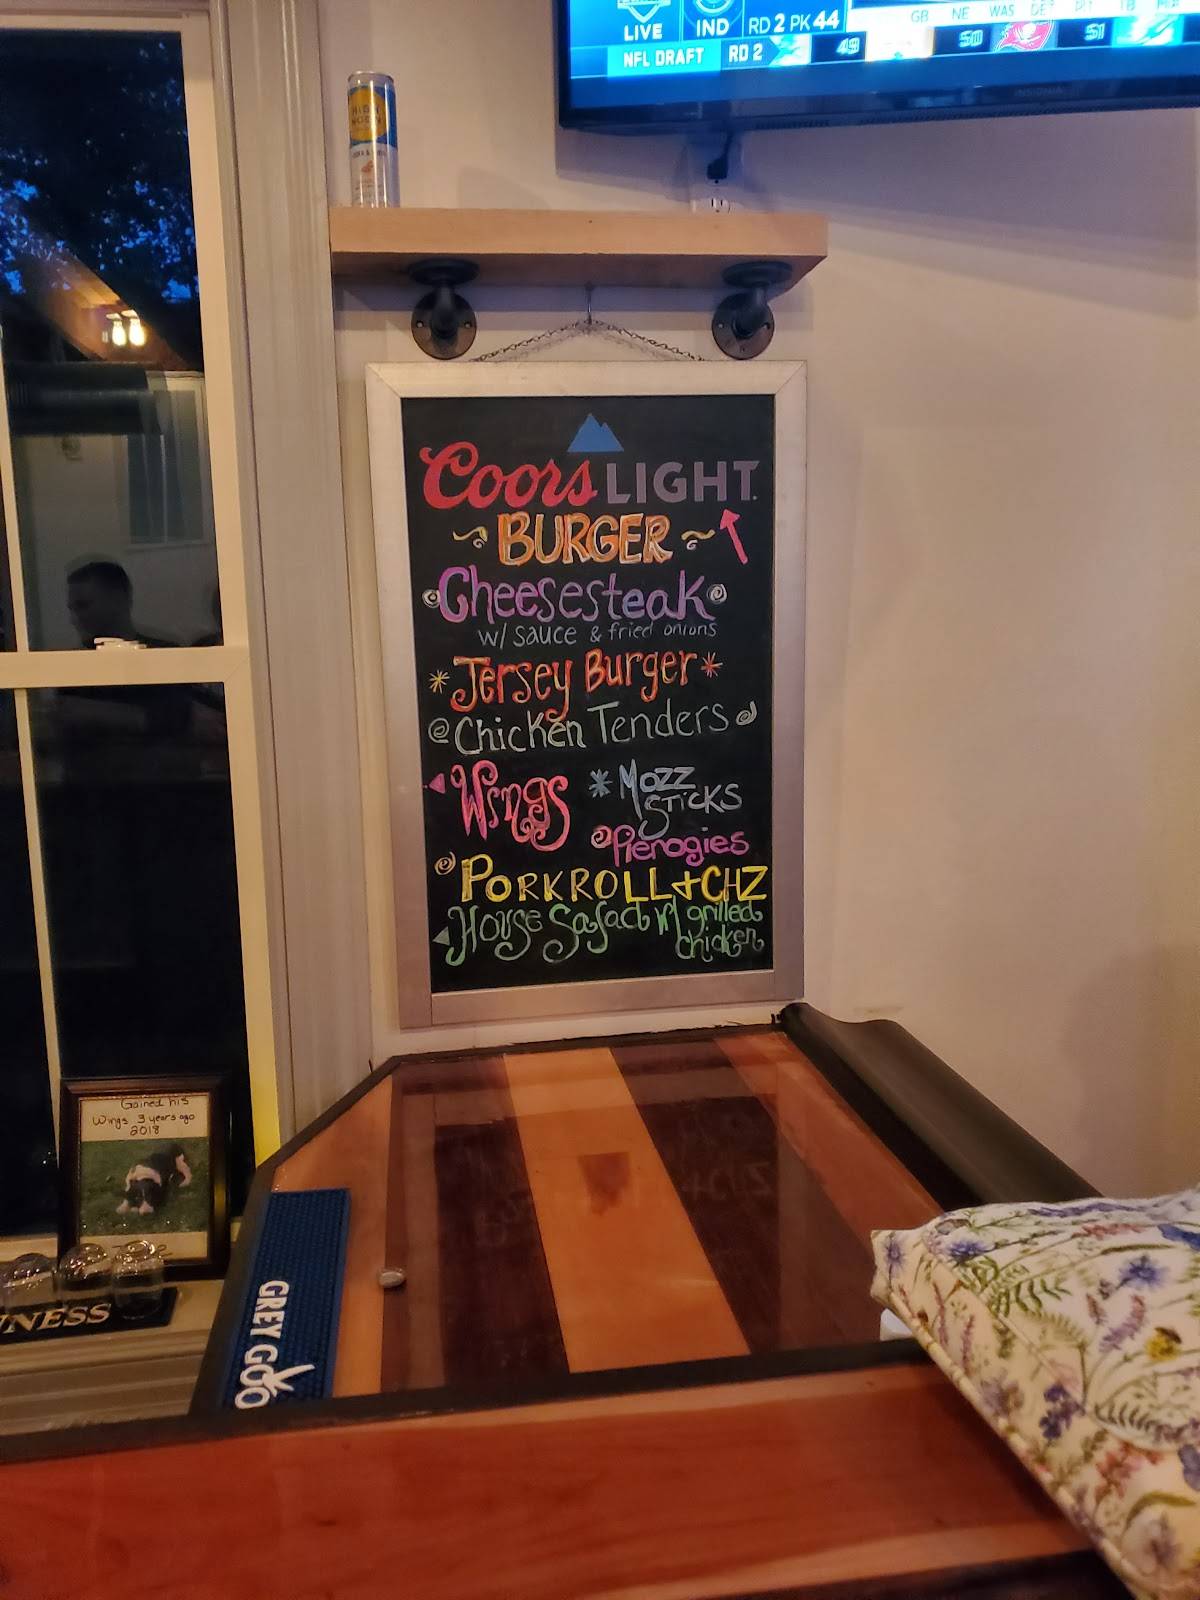 LIVE
IND
RD 2 PK 44
GB NE WAS DET PIT TB MIA
NFL DRAFT
RD 2
49
50
51
INSIGNIA
HIGH
NOON
Coors LIGHT
~ BURGER ~
Cheesesteak
w/ sauce & fried onions
* Jersey Burger *
@ Chicken Tenders
Wings
* Mozz
STiCKS
Pierogies
PORKROLL + CHZ
House Salad w/ grilled
chicken
Gained his
Wings 3 years ago
2018
NNESS
GREY GOO